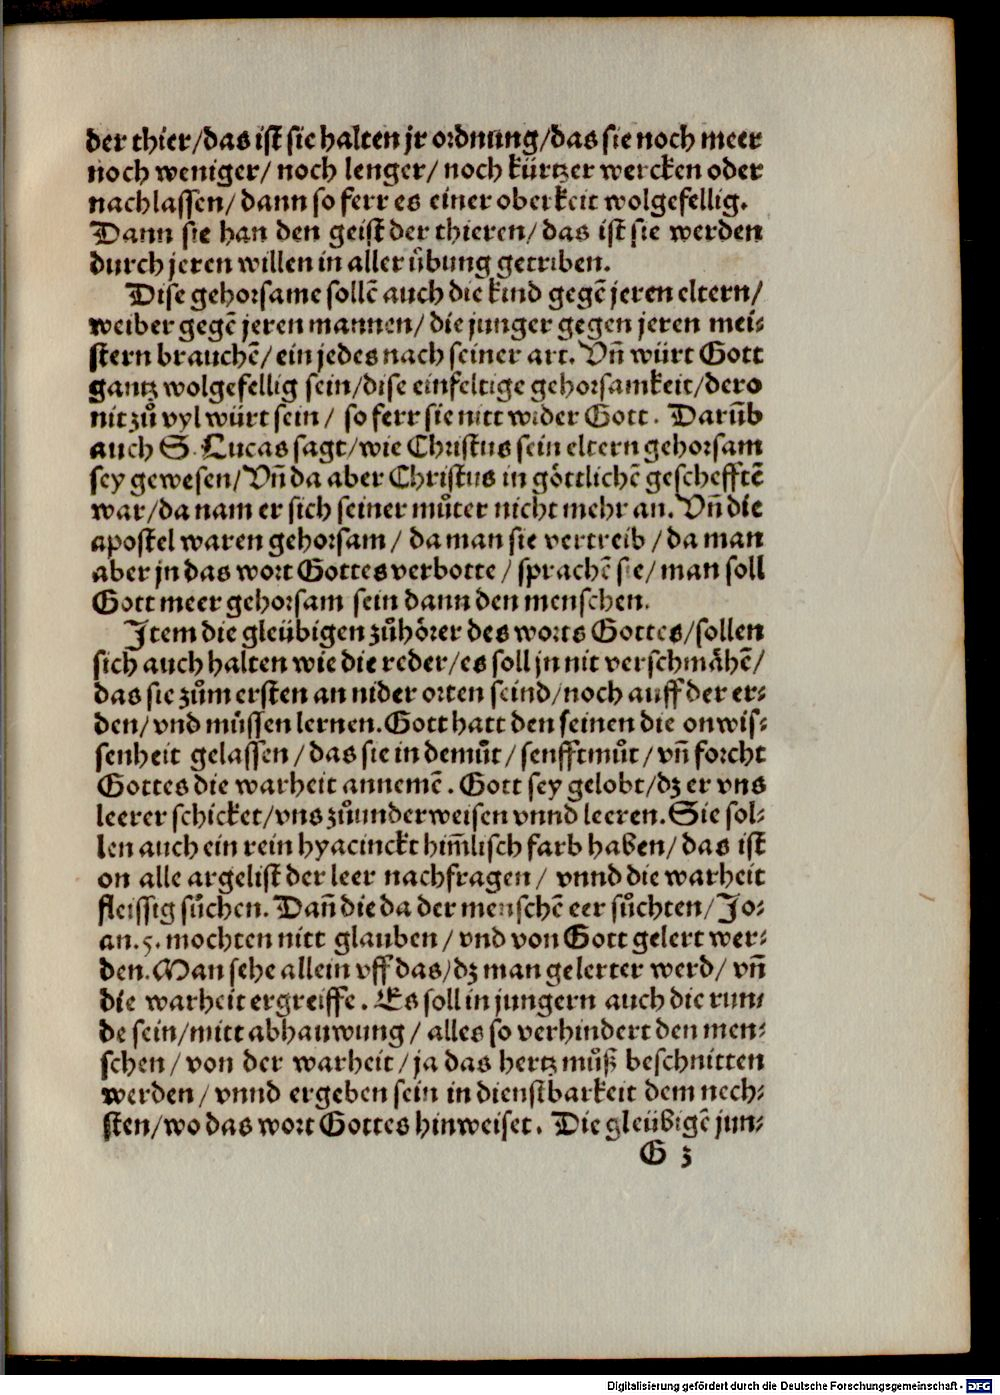 der thier/das ist sie halten jr ordnung/das sie noch meer
noch weniger/ noch lenger/ noch kürtzer wercken oder
nachlassen/ dann so ferr es einer oberkeit wolgefellig.
Dann sie han den geist der thieren/ das ist sie werden
durch jeren willen in aller übung getriben.
Dise gehorsame sollē auch die kind gegē jeren eltern/
weiber gegē jeren mannen/ die junger gegen jeren mei⸗
stern brauchē/ ein jedes nach seiner art. Vñ würt Gott
gantz wolgefellig sein/dise einfeltige gehorsamkeit/dero
nit zů vyl würt sein/ so ferr sie nitt wider Gott. Darūb
auch S. Lucas sagt/wie Christus sein eltern gehorsam
sey gewesen/Vñ da aber Christus in göttlichē gescheftē
war/da nam er sich seiner můter nicht mehr an. Vñ die
apostel waren gehorsam/ da man sie vertreib/da man
aber jn das wort Gottes verbotte/ sprachē sie/man soll
Gott meer gehorsam sein dann den menschen.
Item die gleübigen zůhörer des worts Gottes/sollen
sich auch halten wie die reder/es soll jn nit verschmähē/
das sie zům ersten an nider orten seind/noch auff der er⸗
den/vnd müssen lernen.Gott hatt den seinen die onwis⸗
senheit gelassen/das sie in demůt/senfftmůt/vñ forcht
Gottes die warheit annemē. Gott sey gelobt/dz er vns
leerer schicket/vns zůunderweisen vnnd leeren. Sie sol⸗
len auch ein rein hyacinckt him̄lisch farb haben/das ist
on alle argelist der leer nachfragen/ vnnd die warheit
fleissig sůchen. Dañ die da der menschē eer sůchten/Jo⸗
an.5. mochten nitt glauben/vnd von Gott gelert wer⸗
den.Man sehe allein vff das/dz man gelerter werd/ vñ
die warheit ergreiffe. Es soll in jungern auch die run⸗
de sein/mitt abhauwung/ alles so verhindert den men⸗
schen/von der warheit/ja das hertz můß beschnitten
werden/vnnd ergeben sein in dienstbarkeit dem nech⸗
sten/wo das wort Gottes hinweiset. Die gleübigē jun⸗
G 3
Digitalisierung gefördert durch die Deutsche Forschungsgemeinschaft - DFG